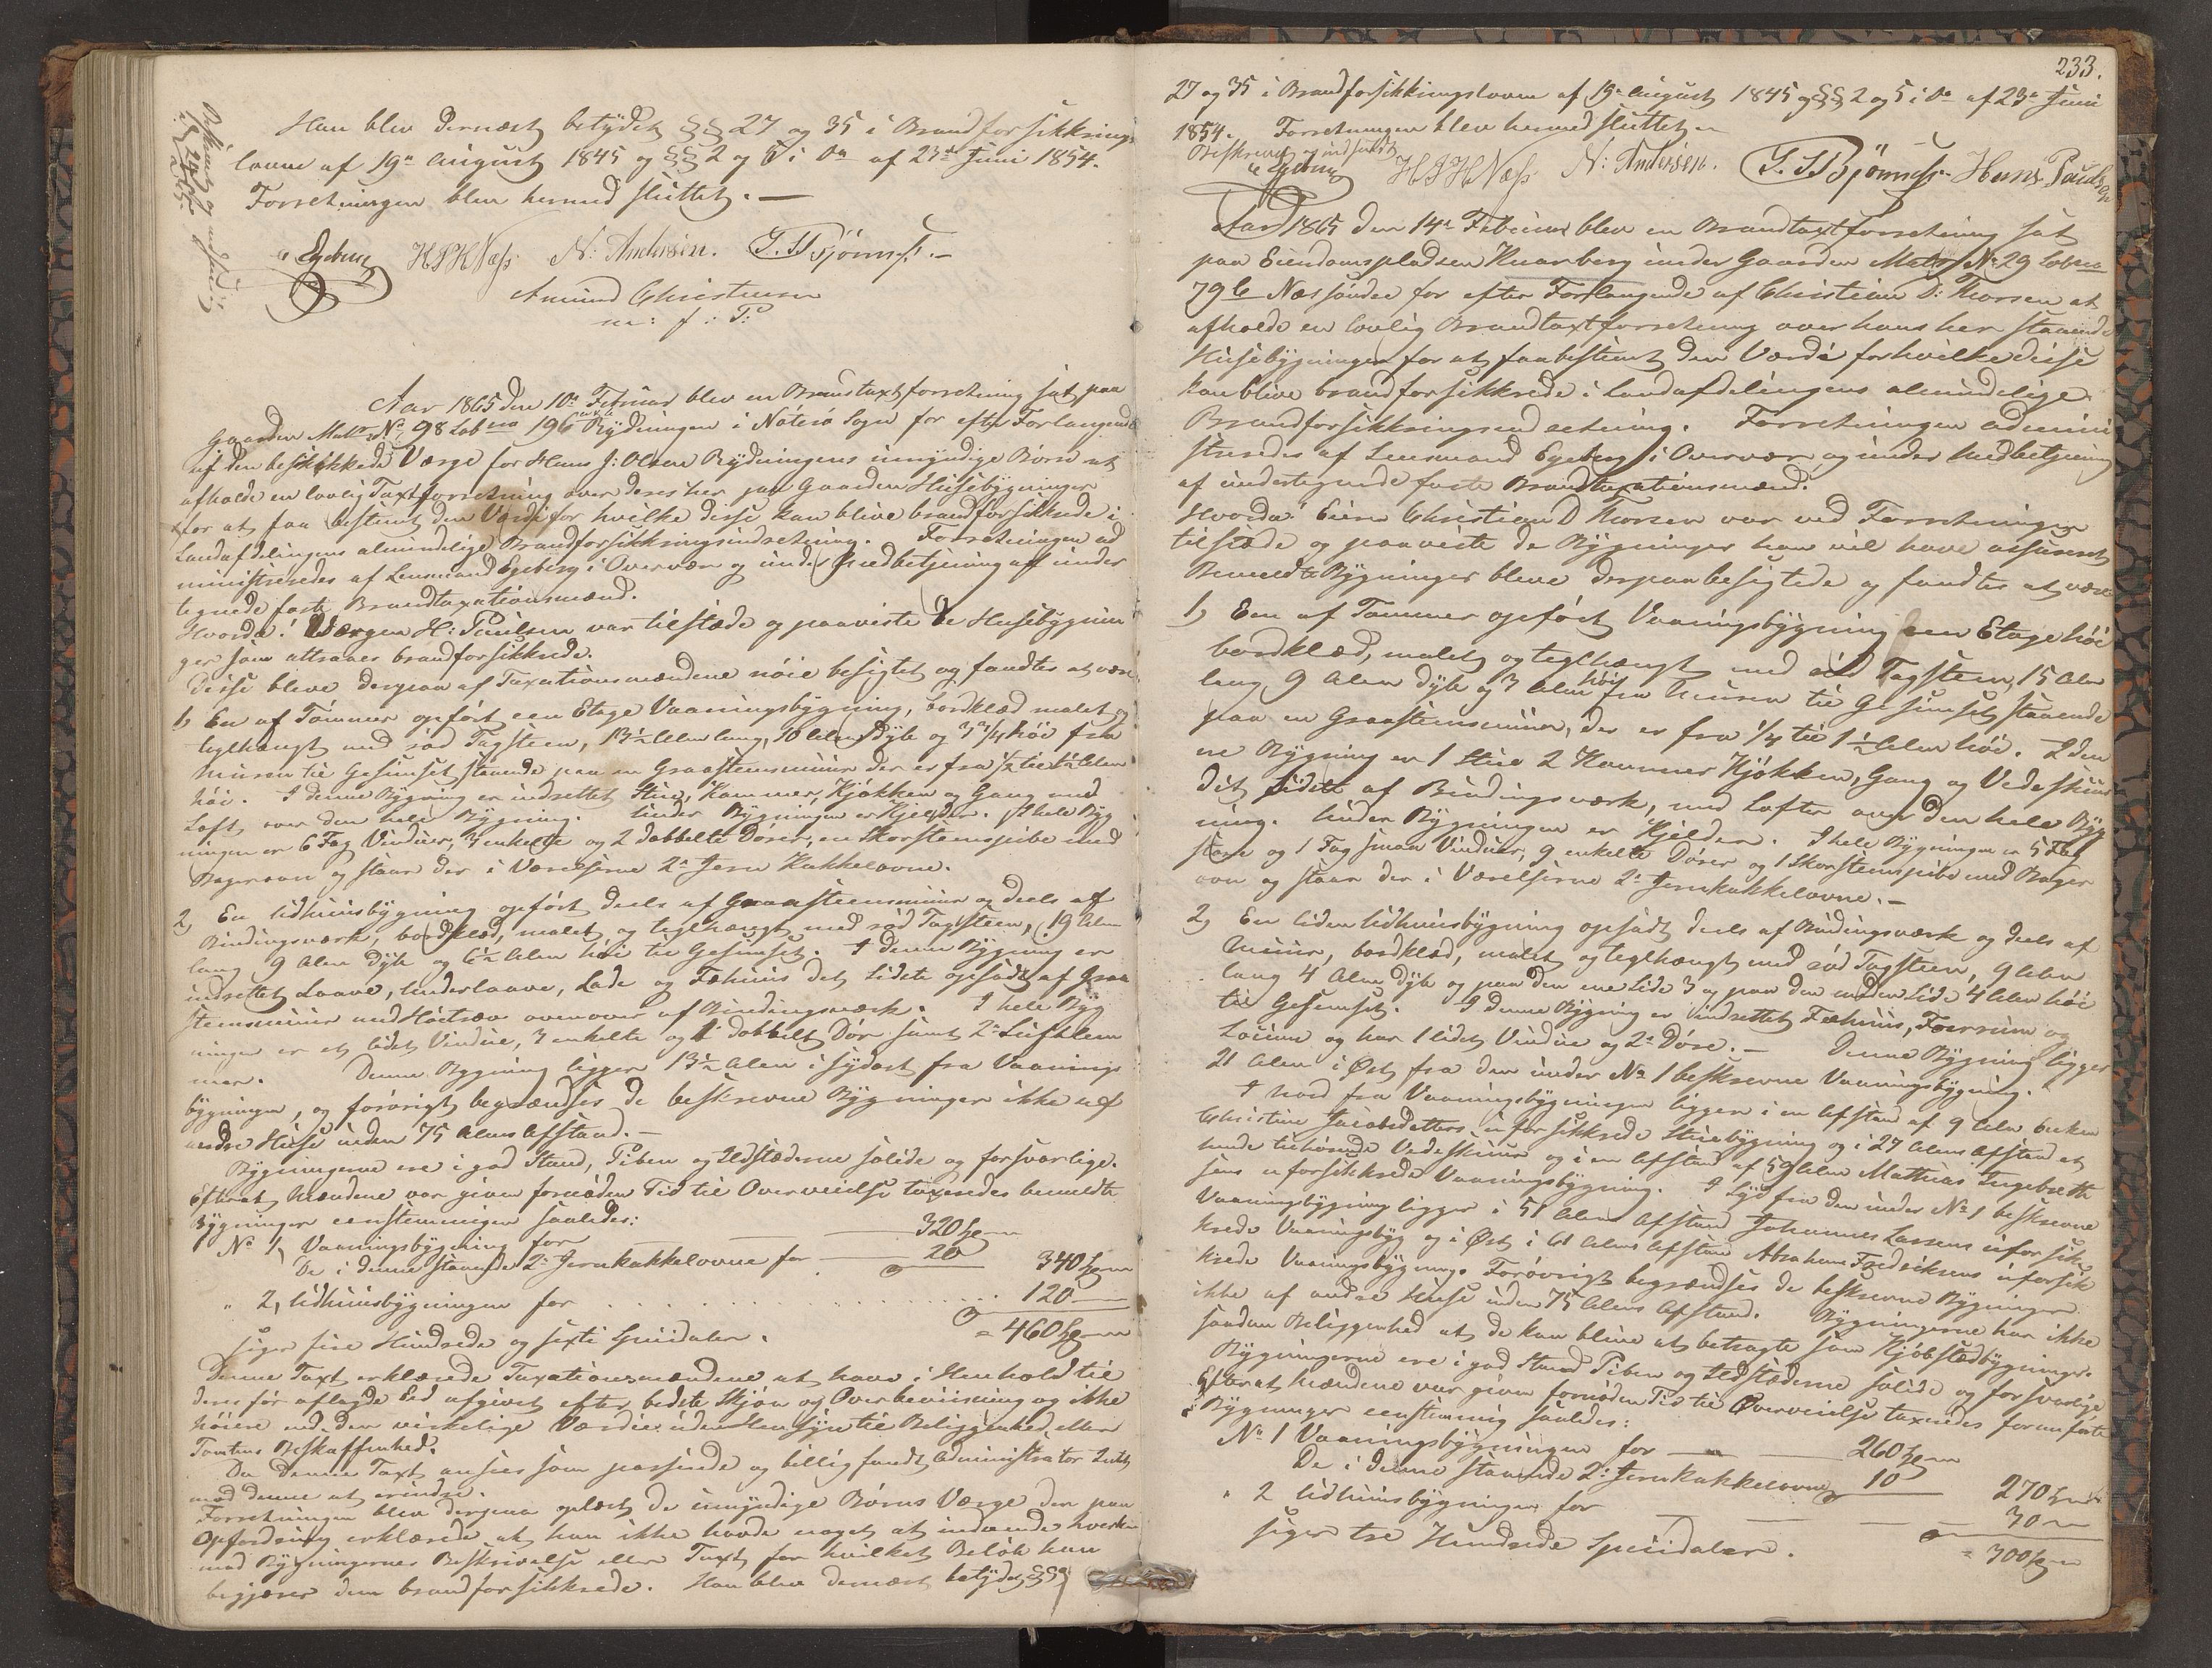 Han blev dernæst betydet §§ 27 og 35 i Brandforsikrings
loven af 19de August 1845 og §§ 2 og 5 i Do af 23de Juni 1854.
Forretningen blev hermed sluttet. —
Egeberg HJHNæss. N: Andersen. T. T. Bjönness. —
Amund Christensen
m: f: P:
Aar 1865 den 10de Februar blev en Brandtaxtforretning sat paa
Gaarden Matr No 98 Løbeno 196 Rydningen i Nøterø Sogn for efter Forlangende
af den beskikkede Værge for Hans J: Olsen Rydningens umyndige Børn at
afholde en lovlig Taxtforretning over deres her paa Gaarden Husebygninger
for at faa bestemt den Værdi for hvilke disse kan blive brandforsikkrede i
Landafdelingens almindelige Brandforsikkringsindretning. Forretningen ad
ministreredes af Lensmand Egeberg i Overvær og under Medbetjening af under
tegnede faste Brandtaxationsmænd.
Hvorda! Værgen H: Paulsen var tilstæde og paaviste de Husebygnin
ger som attraaes brandforsikkrede.
Disse bleve derpaa af Taxationsmændene nøie besigtet og fandtes at være
1, En af Tømmer opført een Etage Vaaningsbygning, bordklæd malet og
teglhængt med rød Tagsteen, 13½ Alen lang, 10 Alen dyb og 3¾ høi fra
Muren til Gesimset staaende paa en Graasteensmuur der er fra ½ til 1½ Alen
høi. I denne Bygning er indrettet Stue, Kammer, Kjøkken og Gang med
Loft over den hele Bygning. Under Bygningen er Kjelder. I hele Byg
ningen er 6 Fag Vinduer, 3 enkelte og 2 dobbelte Dører, en Skorsteenspibe med
Bagerovn og staar der i Værelserne 2de Jern Kakkelovne.
2, En Udhuusbygning opført deels af Graasteensmuur og deels af
Bindingsværk, bordklæd, malet og teglhængt med rød Tagsteen, 19 Alen
lang 9 Alen dyb og 6½ Alen høi til Gesimset. I denne Bygning er
indrettet Laave, Underlaave, Lade og Fæhuus det sidste opsadt af Graa
steensmuur med Høitrev ovenover af Bindingsværk. I hele Byg
ningen er et lidet Vindue, 3 enkelte og 1 dobbelt Dør samt 2de Luftlem
mer. Denne Bygning ligger 13½ Alen i Sydost fra Vaanings
bygningen, og forøvrigt begrændses de beskrevne Bygninger ikke af
andre Huse inden 75 Alens Afstand. —
Bygningerne ere i god Stand, Piben og Ildstæderne solide og forsvarlige.
Efterat Mændene var given fornøden Tid til Overveielse taxeredes bemeldte
Bygninger eenstemmigen saaledes:
No 1, Vaaningsbygning for 320 Spd
De i denne staaende 2de Jernkakkelovne for 20 340 Spd
" 2, Udhuusbygningen for 120
= 460 Spd
siger fire Hundrede og sexti Speciedaler.
Denne Taxt erklærede Taxationsmændene at have i Henhold til
deres før aflagde Eed afgivet efter bedste Skjøn og Overbeviisning og ikke
høiere end den virkelige Værdie uden Hensyn til Beliggenhed eller
Tomtens Beskaffenhed.
Da denne Taxt ansees som passende og billig fandt Administrator Intet
mod denne at erindre.
Forretningen blev derpaa oplæst de umyndige Børns Værge der paa
Opfordring erklærede at han ikke havde noget at indvende hverken
mod Bygningernes Beskrivelse eller Taxt, for hvilket Beløb han
begjærer dem brandforsikkrede. Han blev dernæst betydet §§
233.
27 og 35 i Brandforsikkringsloven af 19de August 1845 og §§ 2 og 5 i Do af 23de Juni
1854. Forretningen blev hermed sluttet.
Beskrevet og indsendt
Egeberg HJHNæss. N: Andersen. T. T. Bjönness. Hans Paulsen
Aar 1865 den 14de Februar blev en Brandtaxtforretning sat
paa Eiendomspladsen Knarberg under Gaarden Matr No 29 Løbeno
79b Næs søndre for efter Forlangende af Christian D: Thorsen at
afholde en lovlig Brandtaxtforretning over hans her staaende
Husebygninger for at faa bestemt den Værdi for hvilke disse
kan blive brandforsikkrede i Landafdelingens almindelige
Brandforsikkringsindretning. Forretningen admini
streredes af Lensmand Egeberg i Overvær og under Medbetjening
af undertegnede faste Brandtaxationsmænd.
Hvorda! Eieren Christian D Thorsen var ved Forretningen
tilstæde og paaviste de Bygninger han vil have assureret
Bemeldte Bygninger bleve derpaa besigtede og fandtes at være
1, Een af Tømmer opført Vaaningsbygning een Etage høi
bordklæd, malet og teglhængt med rød Tagsteen, 15 Alen
lang 9 Alen dyb og 3 Alen høi fra Muren til Gesimset staaende
paa en Graasteensmuur, der er fra ¼ til 1½ Alen høi. I den
ne Bygning er 1 Stue 2 Kammer Kjøkken, Gang og Vedeskuur
det sidste af Bindingsværk, med Lofter over den hele Byg
ning. Under Bygningen er Kjelder. I hele Bygningen er 5 Fag
store og 1 Fag smaa Vinduer, 9 enkelte Dører og 1 Skorsteenspibe med Bager
ovn og staar der i Værelserne 2de Jernkakkelovne. —
2, En liden Udhuusbygning opsadt deels af Bindingsværk og deels af
Muur, bordklæd, malet og teglhængt med rød Tagsteen, 9 Alen
lang 4 Alen dyb og paa den ene Side 3 og paa den anden Side 4 Alen høi
til Gesimset. I denne Bygning er indrettet Fæhuus, Foerrum og
Locum og har 1 lidet Vindue og 2de Døre. — Denne Bygning ligger
21 Alen i Øst fra den under No 1 beskrevne Vaaningsbygning.
I Nord fra Vaaningsbygningen ligger i en Afstand af 9 Alen Enken
Christine Jacobsdatters uforsikkrede Stuebygning og i 27 Alens Afstand et
hende tilhørende Vedeskuur og i en Afstand af 59 Alen Mathias Ingebreth
sens uforsikkrede Vaaningsbygning. I Syd fra den under No 1 beskrevne
Vaaningsbygning ligger i 51 Alens Afstand Johannes Larsens uforsik
krede Vaaningsbyg og i Øst i 61 Alens Afstand Abraham Fredriksens uforsik
krede Vaaningsbygning. Forøvrigt begrændses de beskrevne Bygninger
ikke af andre Huse inden 75 Alens Afstand. Bygningerne har ikke
saadan Beliggenhed at de kan blive at betragte som Kjøbstedbygninger.
Bygningerne ere i god Stand Piben og Ildstæderne solide og forsvarlige
Efterat Mændene var given fornøden Tid til Overveielse taxeredes fornævnte
Bygninger eenstemmig saaledes:
No 1 Vaaningsbygningen for 260 Spd
De i denne staaende 2de Jernkakkelovne 10 270 Spd
" 2 Udhuusbygningen for 30
= 300 Spd
siger tre Hundrede Speciedaler.